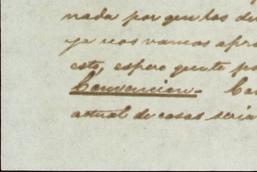 nada por gentes de
ya nos vamos apro
esto, espero gente po
Convencion. Con
actual de cosas seria